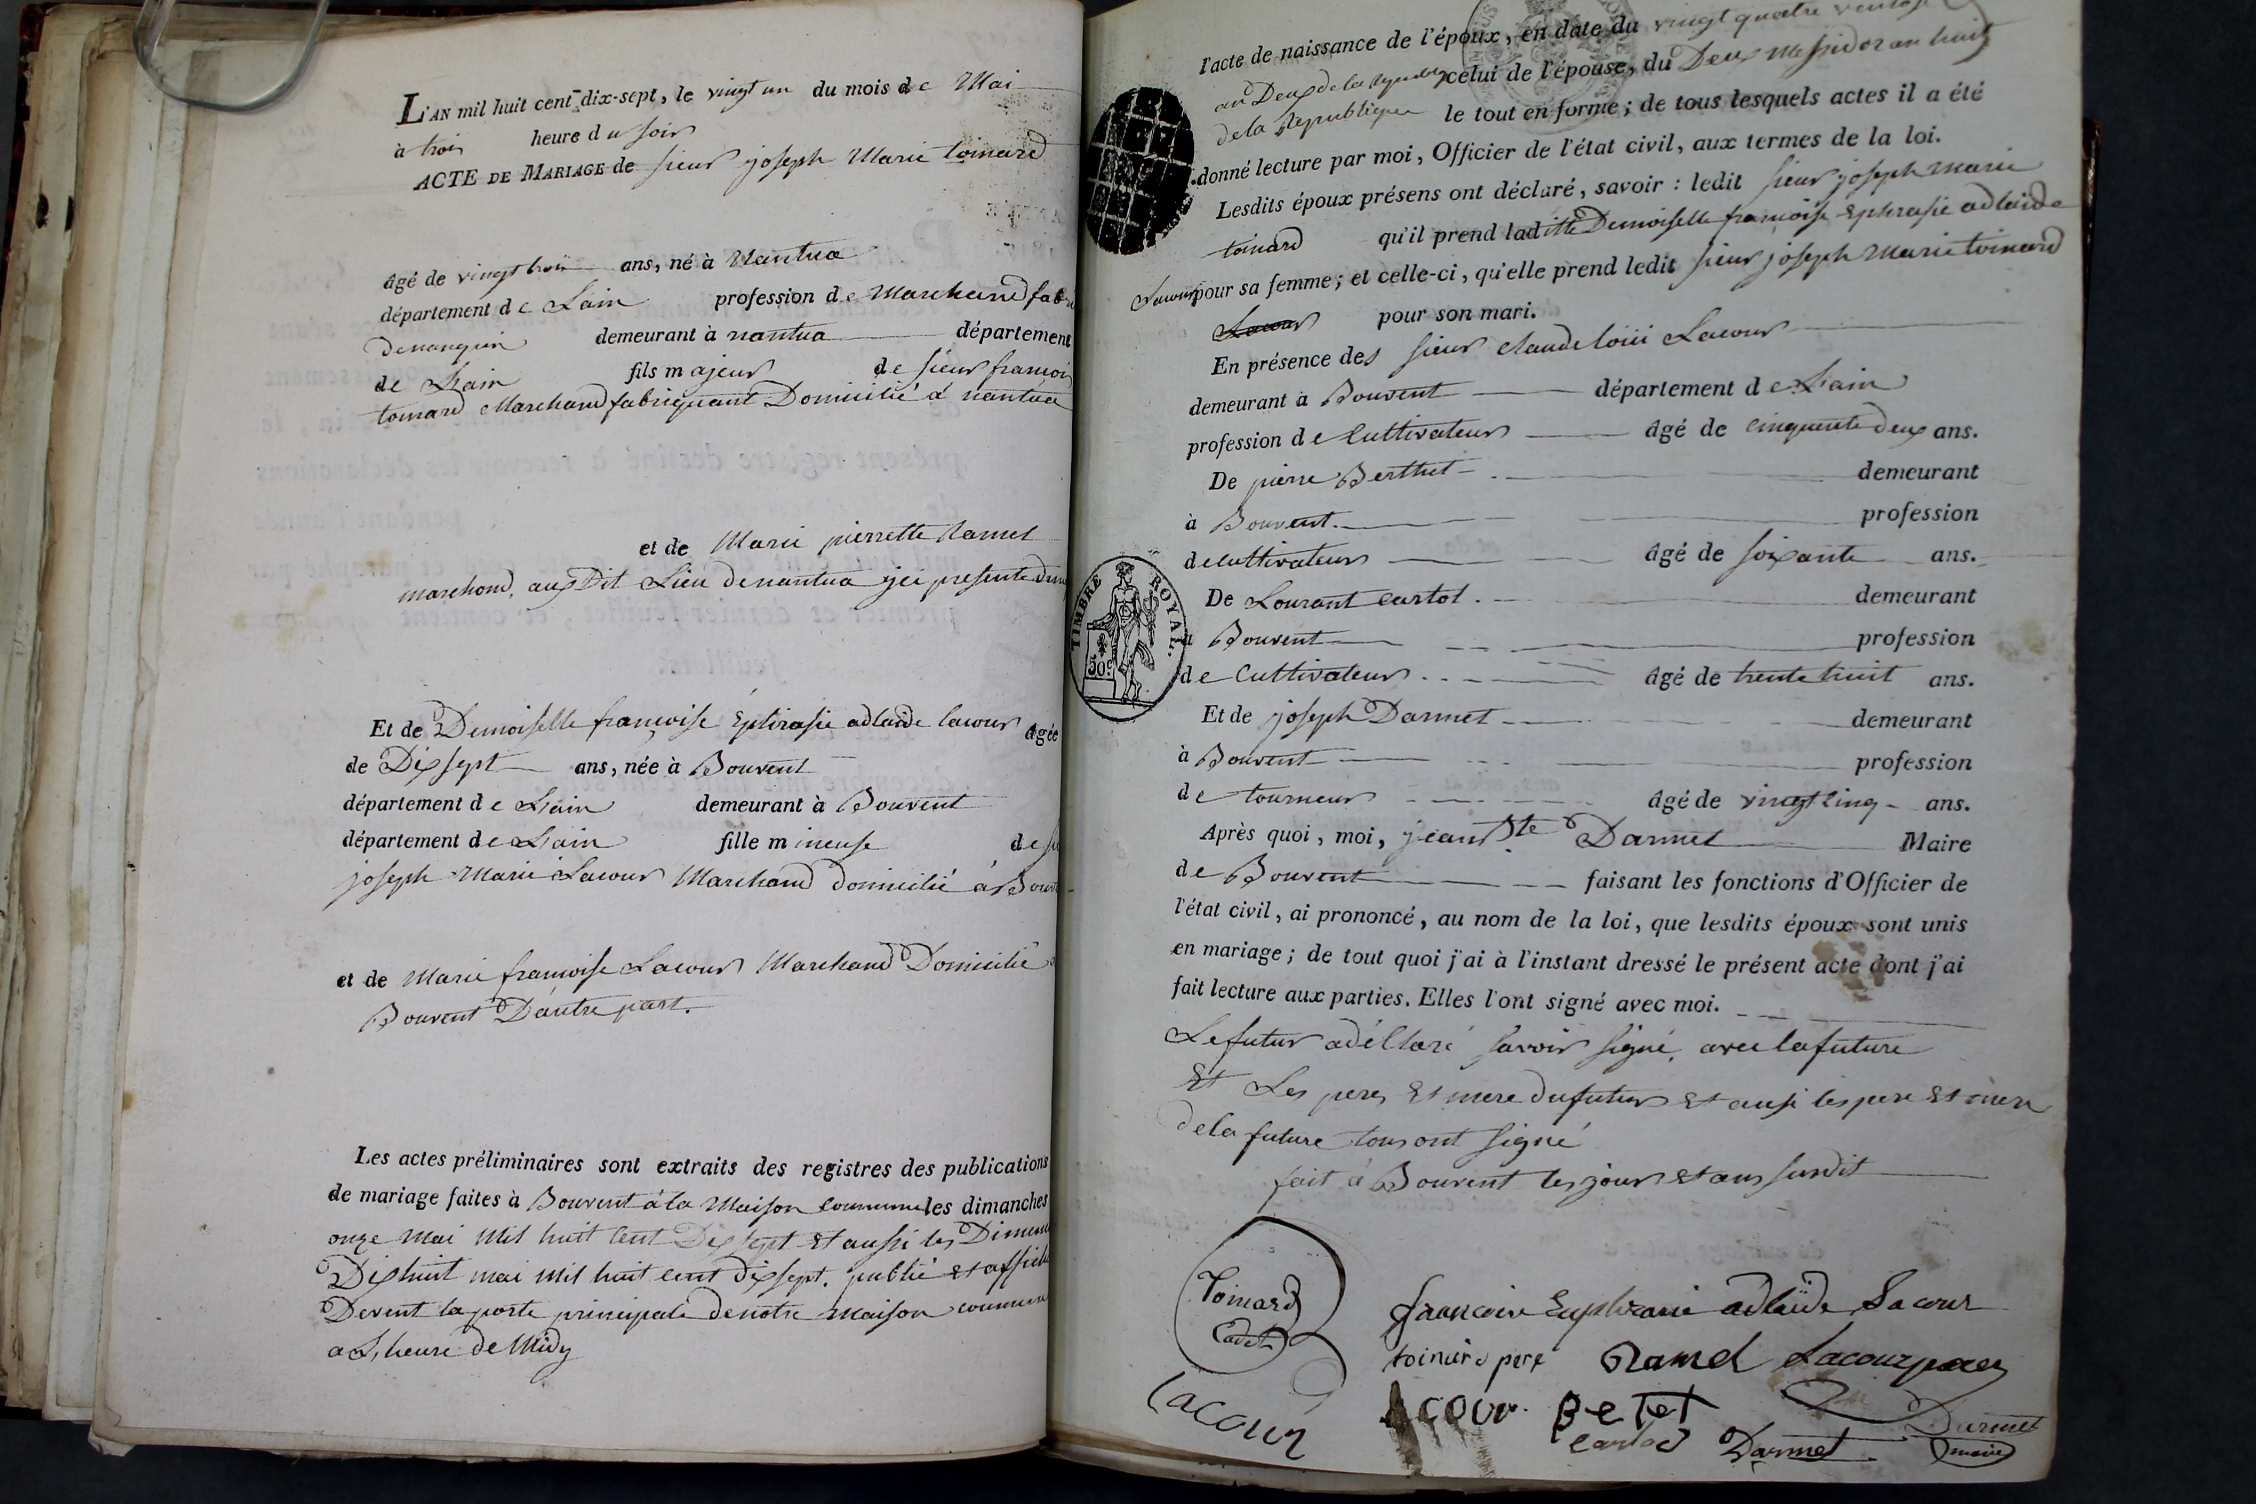 L'AN mil huit cent dix-sept, le vingt un du mois de Mai
à trois heure du soir
ACTE DE MARIAGE de sieur joseph Marie toinard
âgé de vingt trois ans, né à Nantua
département de Lain profession de Marchand fab
denanquin demeurant à nantua département
de Lain fils majeur de sieur françois
toinard Marchand fabriquant Domicilié a nantua
et de Marie pierrette Ramel
marchand, aux Dit Lieu denantua yci presente dune
Et de Demoiselle françoise Ephrasie adlaide lacour agée
de Dix sept ans, née à Bouvent
département de Lain demeurant à Bouvent
département de Lain fille mineuse de
joseph Marie Lacour Marchand domicilié à Bouv
et de Marie françoise Lacour Marchand Domicilié
Bouvent D'autre part.
Les actes préliminaires sont extraits des registres des publications
de mariage faites à Bouvent à la Maison commune les dimanches
onze mai Mil huit Cent Dix sept Et aussi les Dimen
Dixhuit mai Mil huit cent dix sept. publié Et affiché
Devent la porte principale denotre Maison commune
a L'heure de Midy
l'acte de naissance de l'époux, en date du vingt quatre ventose
an Deux de la celui de l'épouse, du Deux Messidor an huit
de la Republique le tout en forme; de tous lesquels actes il a été
donné lecture par moi, Officier de l'état civil, aux termes de la loi.
Lesdits époux présens ont déclaré, savoir : ledit sieur joseph Marie
toinard qu'il prend laditte Demoiselle françoise Ephrasie adlaide
Lacour pour sa femme; et celle-ci, qu'elle prend ledit sieur joseph Marie toinard
Lacour pour son mari.
En présence des sieur Claude loüi Lacour
demeurant à Bouvent département de Lain
profession de Cultivateur âgé de cinquente deux ans.
De pierre Berthet demeurant
à Bouvent. profession
de cultivateur âgé de soixante ans.
De Lourant Cartot. demeurant
à Bouvent profession
de Cultivateur âgé de trente huit ans.
Et de joseph Darmet demeurant
à Bouvent profession
de tourneur âgé de vingt cinq ans.
Après quoi, moi, jean Bte Darmet Maire
de Bouvent faisant les fonctions d'Officier de
l'état civil, ai prononcé, au nom de la loi, que lesdits époux sont unis
en mariage; de tout quoi j'ai à l'instant dressé le présent acte dont j'ai
fait lecture aux parties. Elles l'ont signé avec moi.
Le futur a déclaré savoir signé avec la future
Et Les peres Et mere du futur Et ausi les pere Et mere
de la future tous ont signé
fait à Bouvent les jour Et ans susdit
TIMBRE ROYAL.
50c
Toinard
Cadet
françoise Euphrasie adlaïde Lacour
toinard pere Ramel Lacour pere
Lacour
Lacour Betet
Cartod Darmet
Darmet
maire